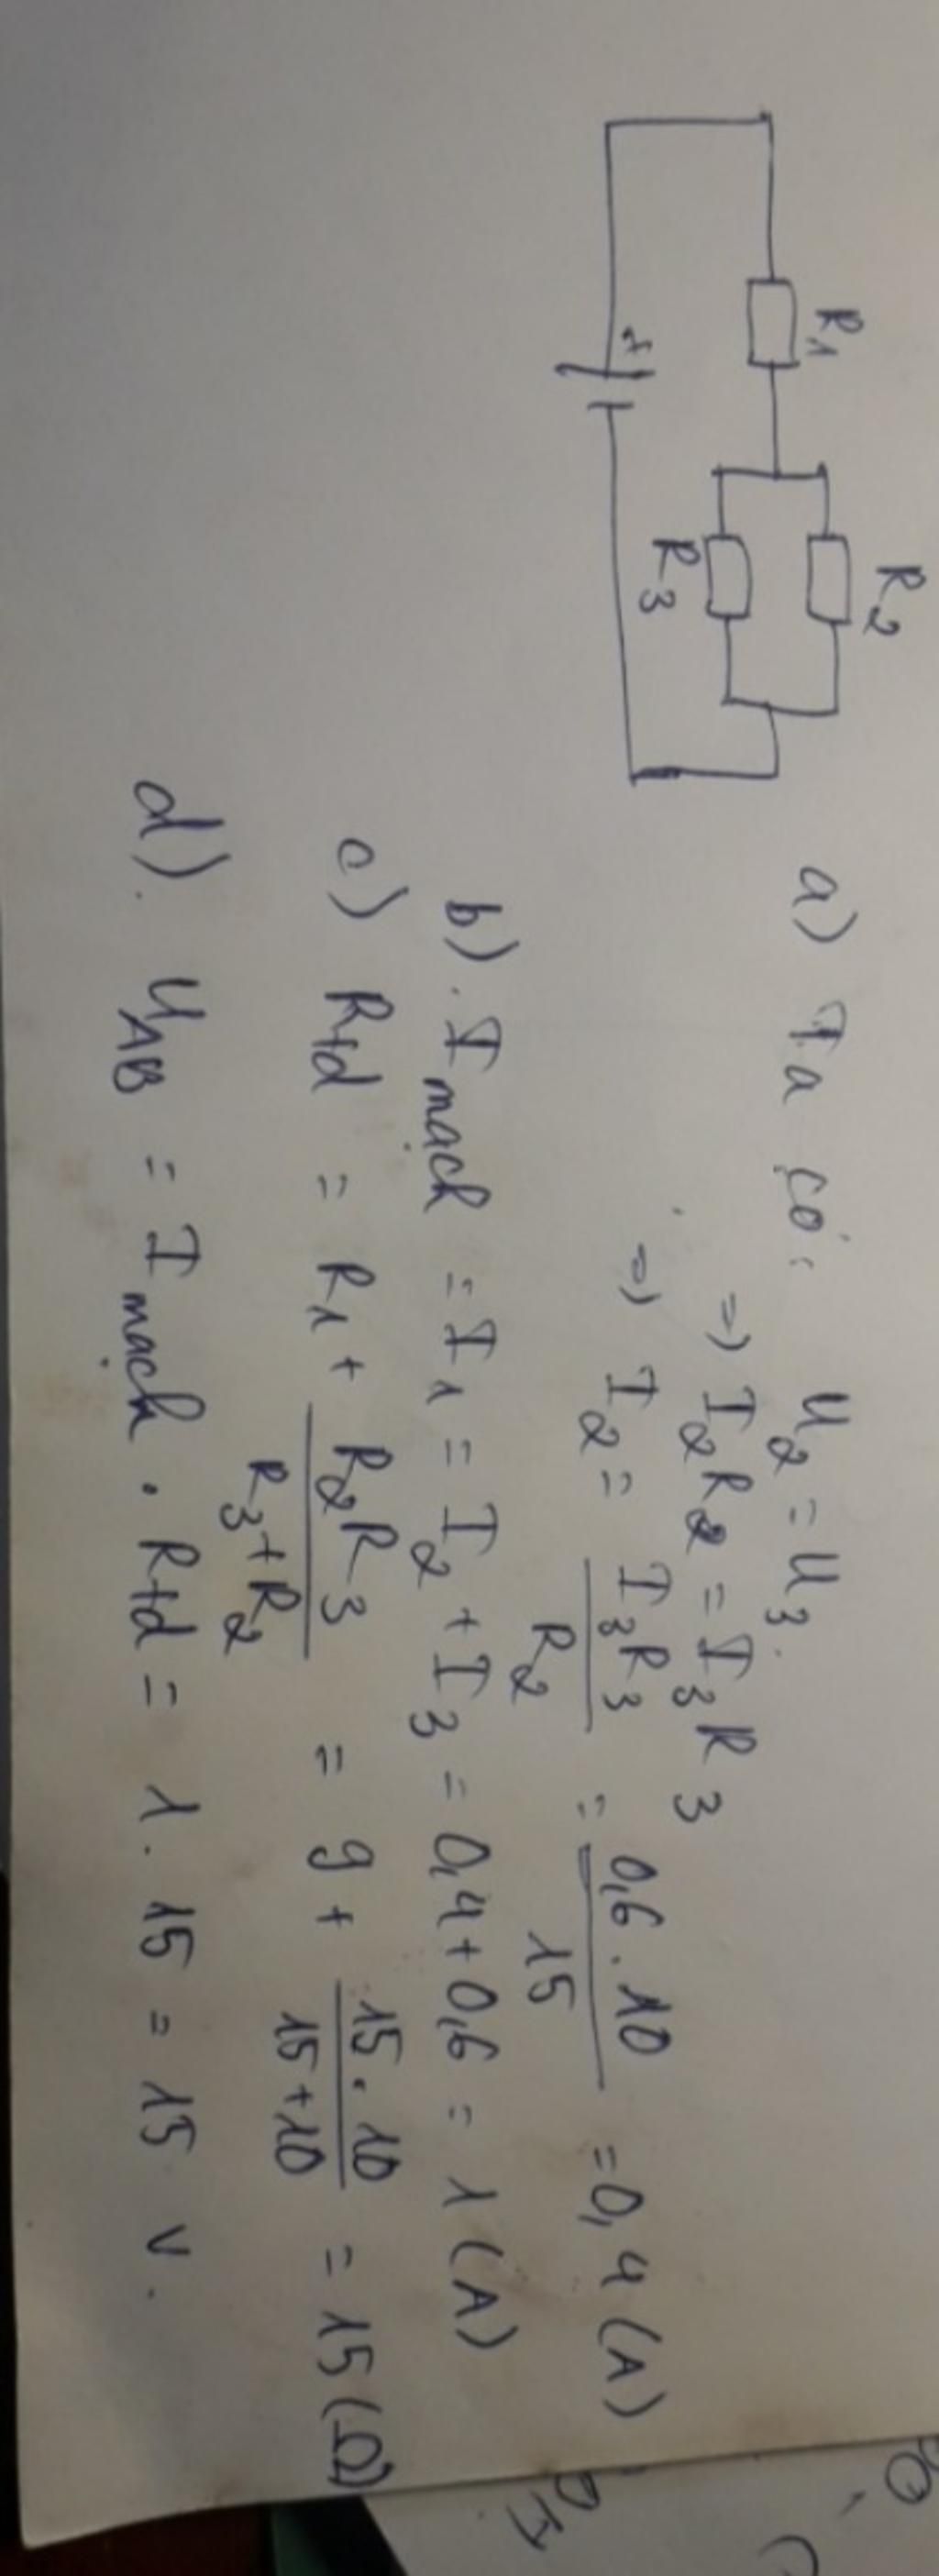 R1
R2
R3
+
a) Ta có: U2 = U3.
=> I2R2 = I3R3
=> I2 = I3R3 / R2 = 0,6 . 10 / 15 = 0,4 (A)
b). I mạch = I1 = I2 + I3 = 0,4 + 0,6 = 1 (A)
c) Rtd = R1 + R2R3 / R3 + R2 = 9 + 15 . 10 / 15 + 10 = 15 (Ω)
d). UAB = I mạch . Rtd = 1 . 15 = 15 V.